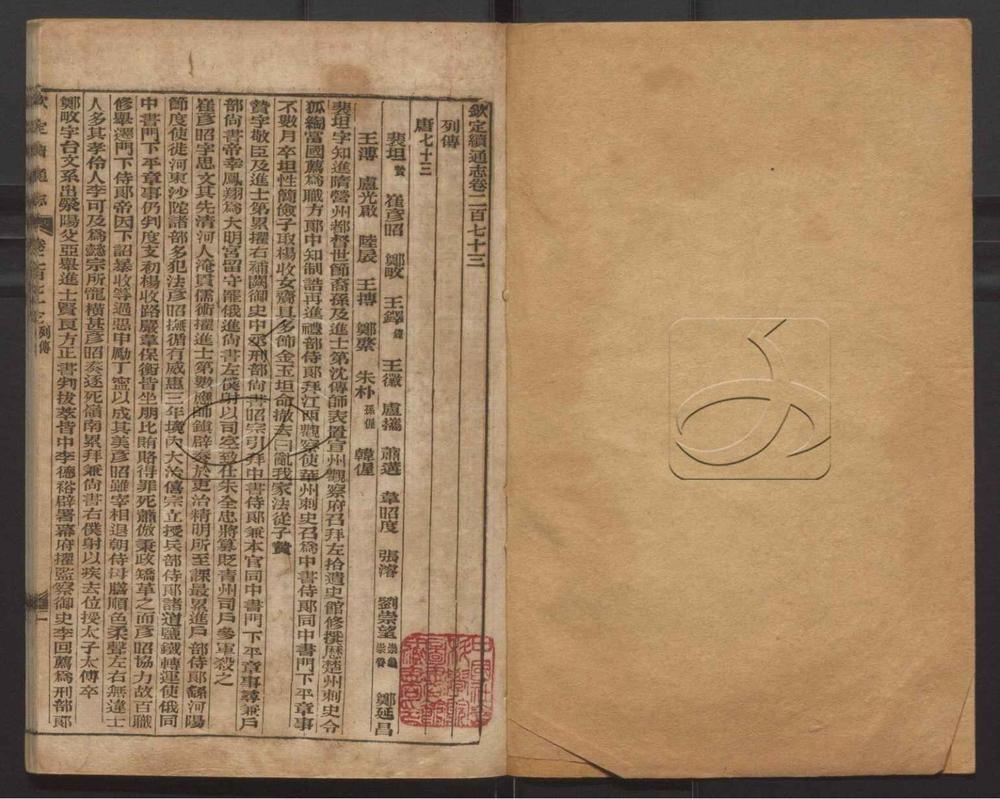 欽定續通志卷二百七十三
列傳
唐七十三
裴坦 贄 崔彥昭 鄭畋 王鐸 鐐 王徽 盧攜 蕭遘 韋昭度 張濬 劉崇望 崇龜 崇魯 鄭延昌
王溥 盧光啟 陸扆 王摶 鄭綮 朱朴 孫偓 韓偓
裴坦字知進隋營州都督世節裔孫及進士第沈傳師表置宣州觀察府召拜左拾遺史館修撰歷楚州刺史令
狐綯當國薦爲職方郎中知制誥再進禮部侍郎拜江西觀察使華州刺史召爲中書侍郎同中書門下平章事
不數月卒坦性簡儉子取楊收女齎具多飾金玉坦命撤去曰亂我家法從子贄
贄字敬臣及進士第累擢右補闕御史中丞刑部尚書昭宗引拜中書侍郎兼本官同中書門下平章事尋兼戶
部尚書帝幸鳳翔爲大明宮留守罷俄進尚書左僕射以司空致仕朱全忠將篡貶青州司戶參軍殺之
崔彥昭字思文其先清河人淹貫儒術擢進士第數應帥鎮辟奏於吏治精明所至課最累進戶部侍郎繇河陽
節度使徙河東沙陀諸部多犯法彥昭撫循有威惠三年境內大治僖宗立授兵部侍郎諸道鹽鐵轉運使俄同
中書門下平章事仍判度支初楊收路巖韋保衡皆坐朋比賄賂得罪死蕭倣秉政矯革之而彥昭協力故百職
修舉邏門下侍郎帝因下詔暴收等過惡申勵丁寧以成其美彥昭雖宰相退朝侍母膳順色柔聲左右無違士
人多其孝伶人李可及爲懿宗所寵橫甚彥昭奏逐死嶺南累拜兼尚書右僕射以疾去位授太子太傅卒
鄭畋字台文系出滎陽父亞舉進士賢良方正書判拔萃皆中李德裕辟署幕府擢監察御史李回薦爲刑部郎